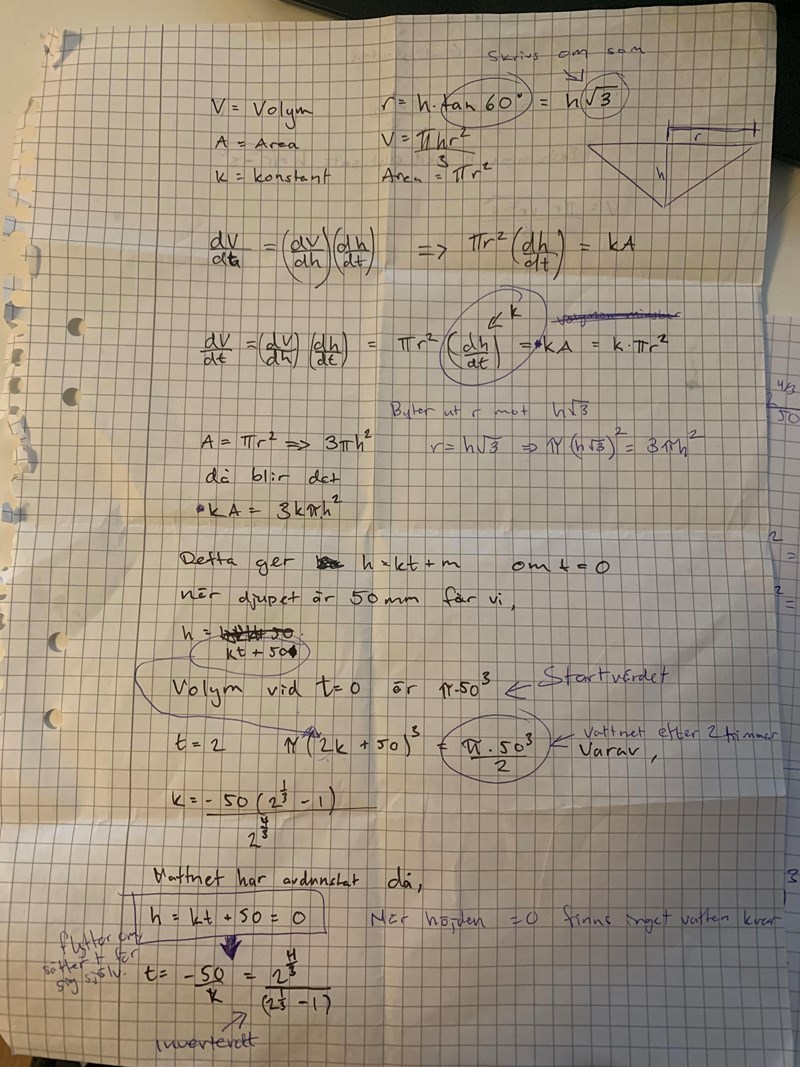 Skrivs om som
V = Volym r = h · tan 60° = h√3
A = Area V = πhr²/3
K = konstant Area = πr²
r
h
dV/dt = (dV/dh)(dh/dt) => πr²(dh/dt) = kA
k
dV/dt = (dV/dh)(dh/dt) = πr²(dh/dt) = kA = k·πr²
Byter ut r mot h√3
A = πr² => 3πh² r = h√3 => π(h√3)² = 3πh²
då blir det
kA = 3kπh²
Detta ger h = kt + m om t = 0
när djupet är 50 mm får vi,
h =
kt + 50
Volym vid t=0 är π·50³ Startvärdet
t = 2 π(2k + 50)³ = π·50³/2 Vattnet efter 2 timmar
Varav,
k = -50(2^(1/3) - 1)/2^(4/3)
Vattnet har avdunstat då,
h = kt + 50 = 0 När höjden =0 finns inget vatten kvar
flyttar om
sätter t för
sig själv.
t = -50/k = 2^(4/3)/(2^(1/3) - 1)
inverterat